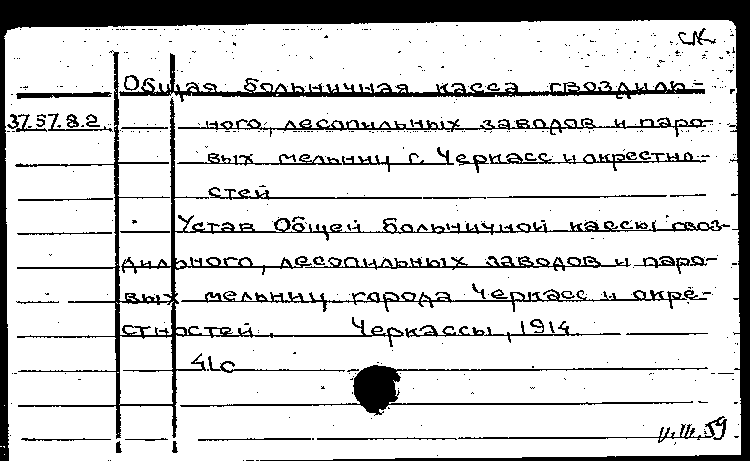 СК
Общая больничная касса гвоздиль-
37.57.8.2 ного, лесопильных заводов и паро-
вых мельниц г. Черкасс и окрестно-
стей
Устав Общей больничной кассы гвоз-
дильного, лесопильных заводов и паро-
вых мельниц города Черкасс и окре-
стностей. Черкассы, 1914
41с